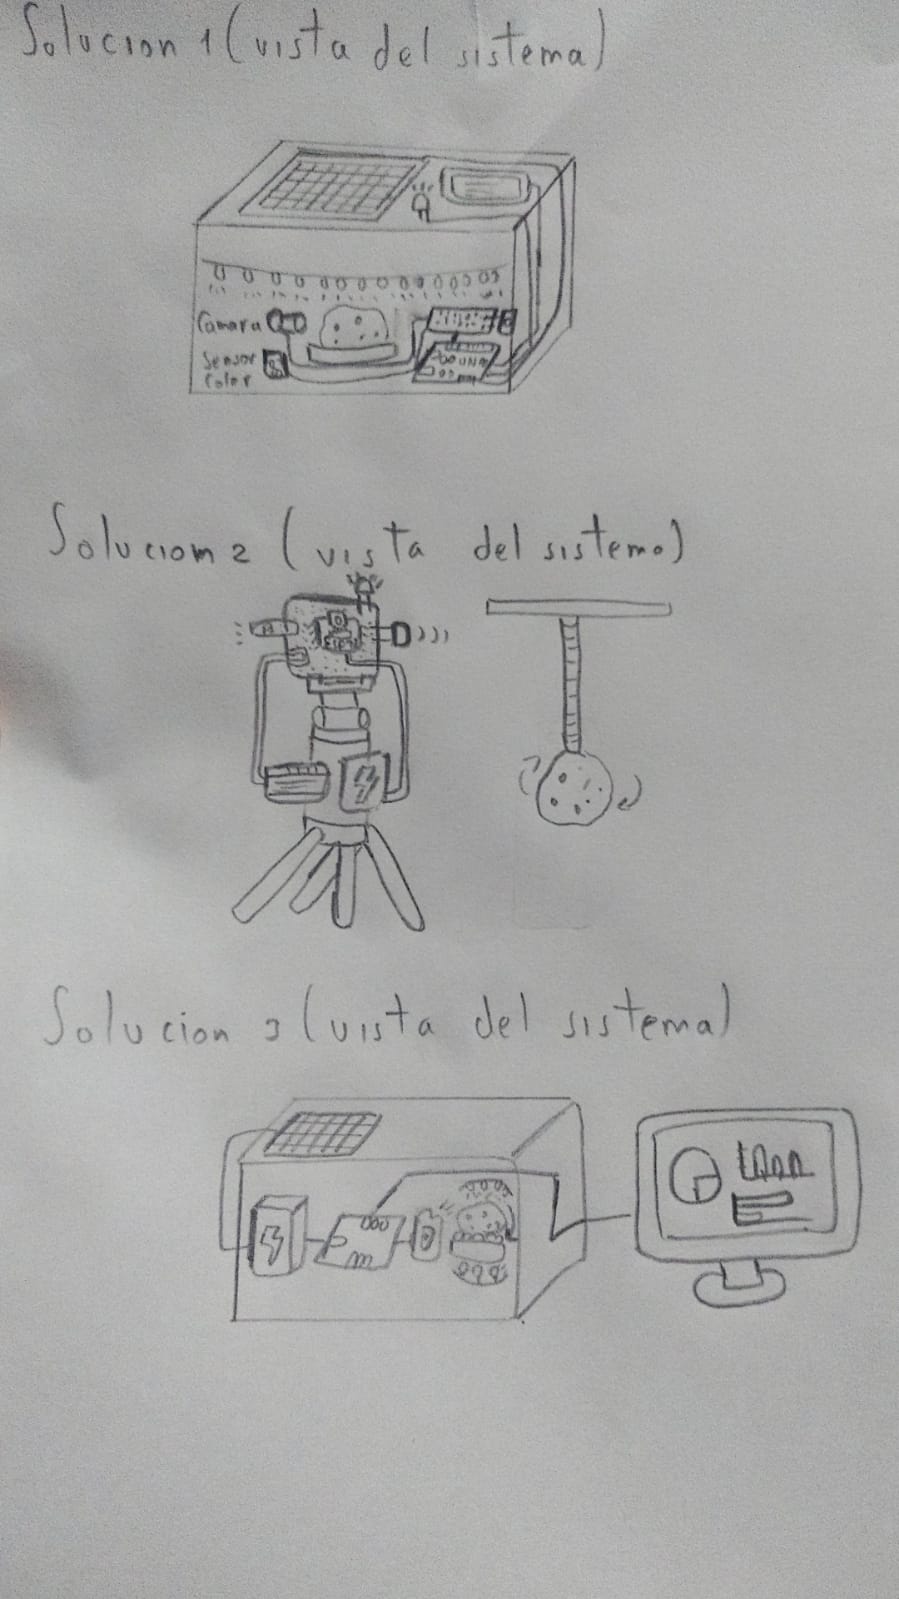 Solucion 1 (vista del sistema)
Camara
Sensor
Color
Solucion 2 (vista del sistema)
Solucion 3 (vista del sistema)